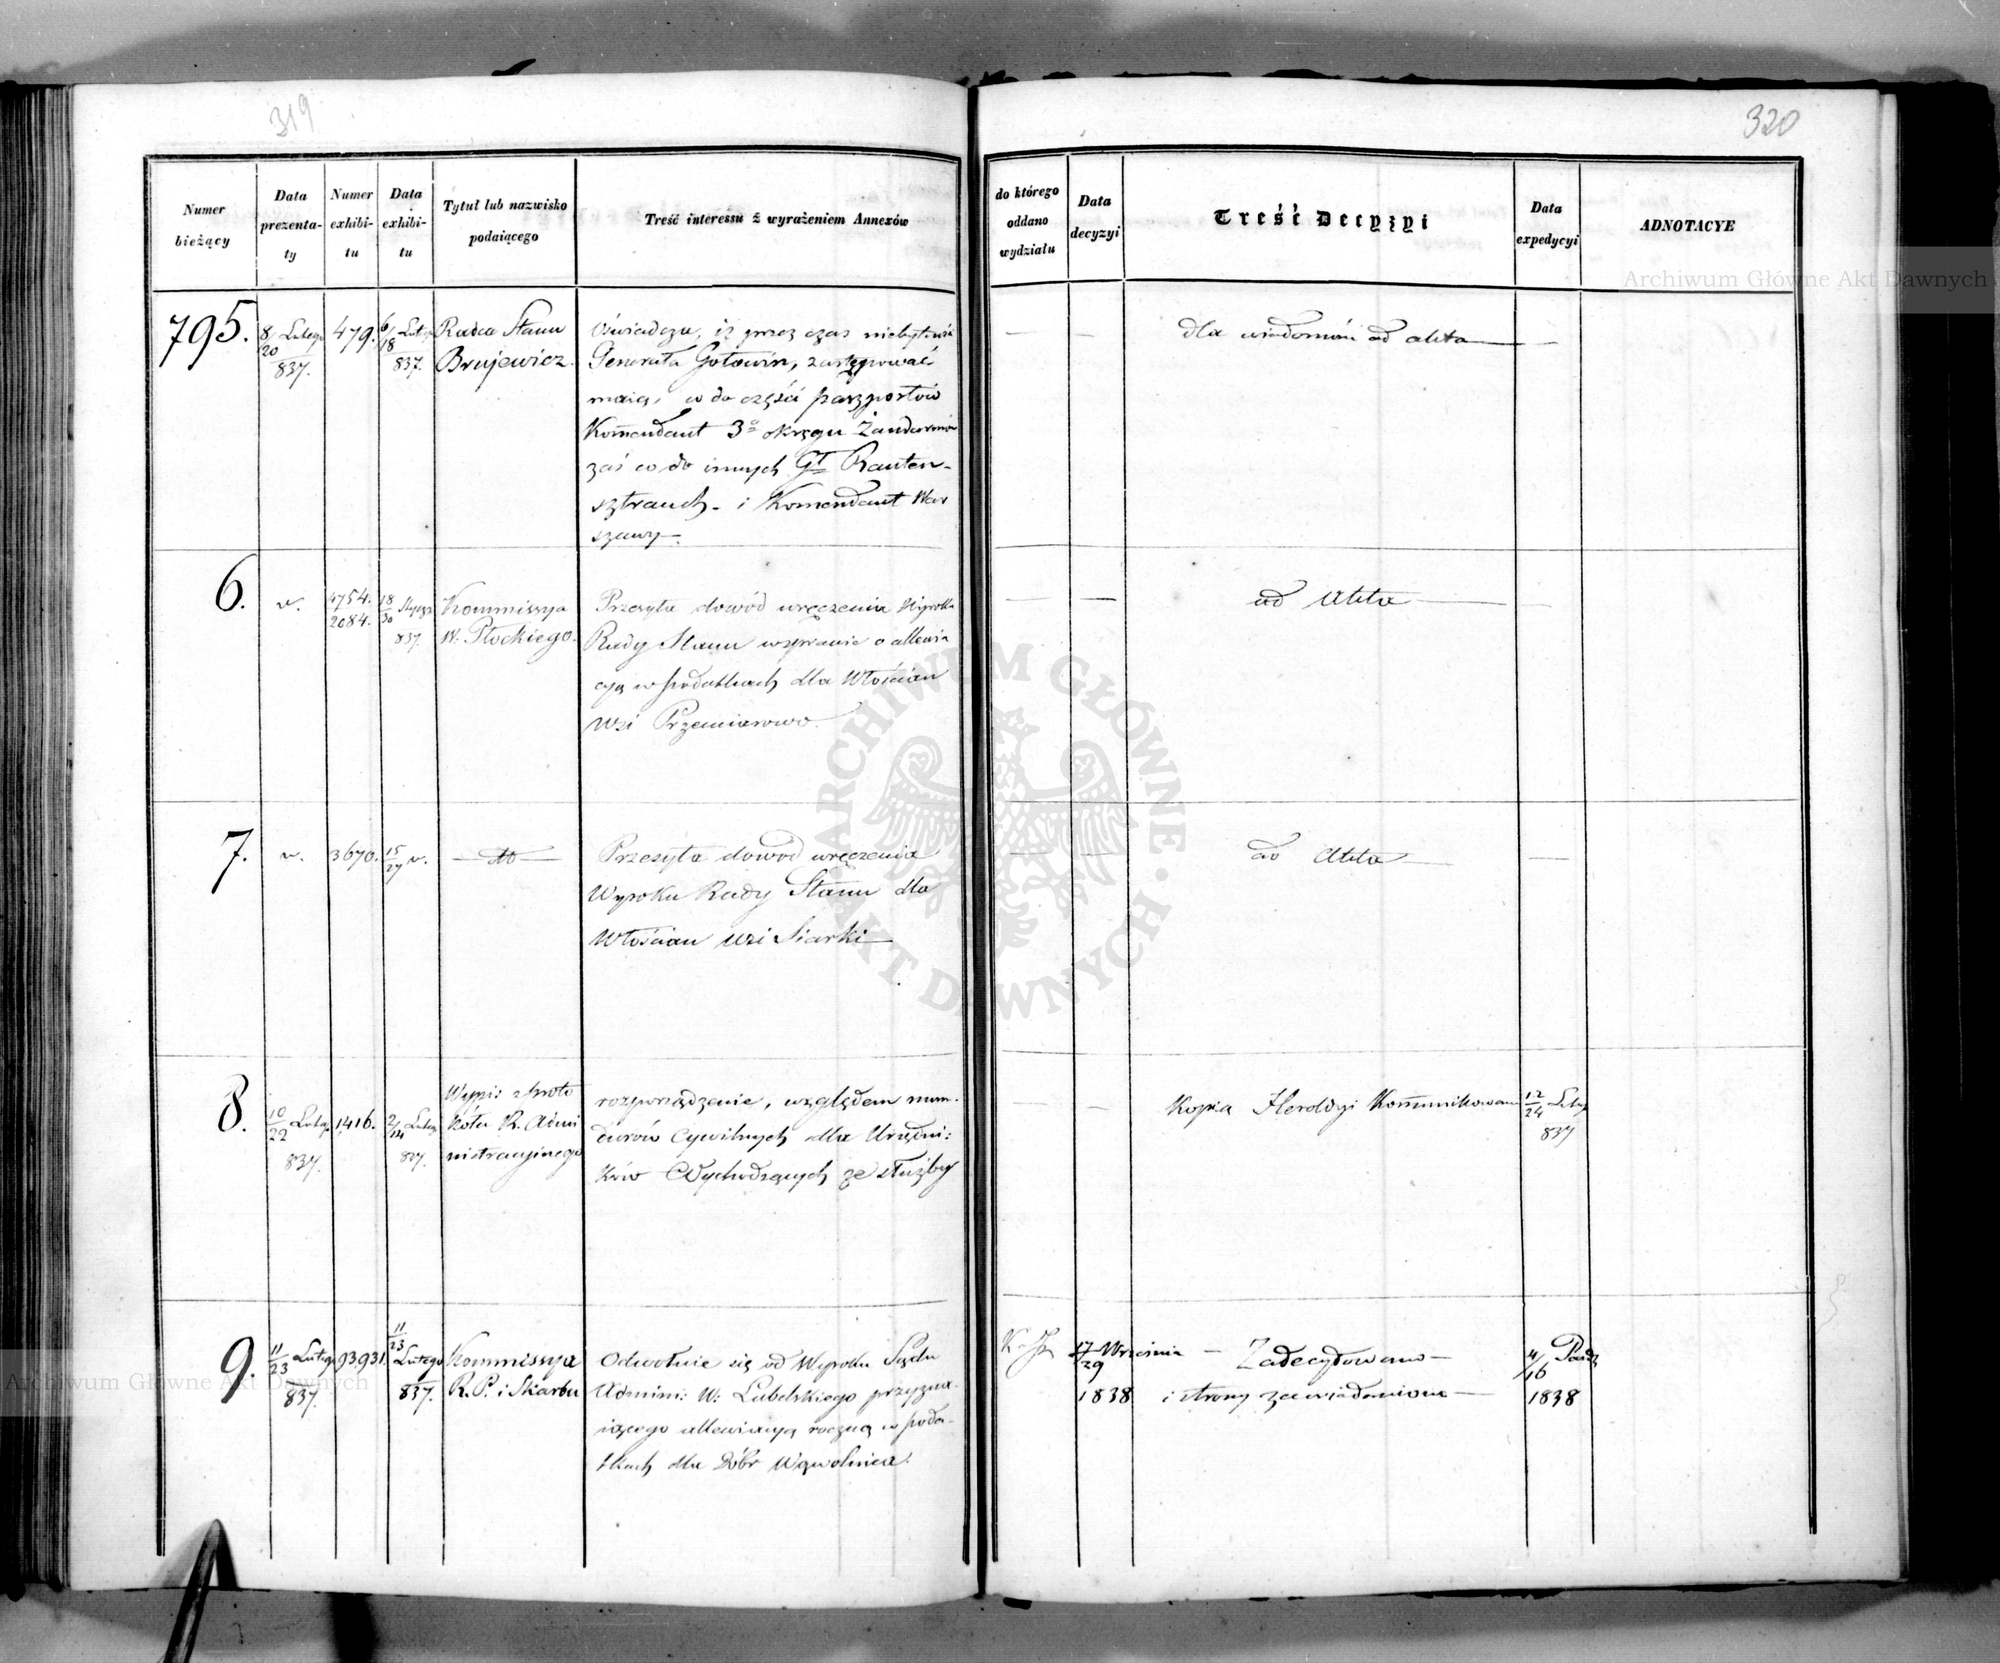 319
320
Numer bieżący
Data prezenta-ty
Numer exhibi-tu
Data exhibi-tu
Tytuł lub nazwisko podaiącego
Treść interessu z wyrażeniem Annexów
do którego oddano wydziału
Data decyzyi
Treść Decyzyi
Data expedycyi
ADNOTACYE
795.
8/20 Lutego
837.
479.
6/18 Lut
837.
Radca Stanu
Brujewicz.
Oświadcza, iż przez czas niebytności
Generała Gołowin, zastępować
maią, co do części paszportów
Komendant 3º okręgu Żandarmów
zaś co do innych Gł Rauten-
sztrauch - i Komendant War
szawy -
dla wiadomości ad akta
6.
v.
4754.
2084.
18/30 Stycz
837.
Kommissya
W. Płockiego.
Przesyła dowód wręczenia Wyroku
Rady Stanu wsprawie o allewia
cyą w podatkach dla Włościan
wsi Przemiarowo.
ad Akta
7.
v.
3670.
15/27 v.
dto
Przesyła dowod wręczenia
Wyroku Rady Stanu dla
Włościan wsi Siarki
ad Akta
8.
10/22 Lutego
837.
1416.
2/14 Lutego
837.
Wypis z proto
kółu R. Admi
nistracyinego
rozporządzenie, względem mun-
durów Cywilnych dla Urzędni:
ków Wychodzących ze służby
Kopia Heroldyi Kommunikowana
12/24 Lut
837
9.
11/23 Lutego
837.
93.931.
11/23
Lutego
837.
Kommissya
R. P. i Skarbu
Odwołuie się od Wyroku Sądu
Admini: W: Lubelskiego przyzna-
iącego allewiacyą roczną w poda-
tkach dla Dóbr Wąwolnica.
17/29 Września
1838
Zadecydowano
i strony zawiadomione
4/16 Paźd
1838
Archiwum Główne Akt Dawnych
ARCHIWUM GŁÓWNE AKT DAWNYCH
Archiwum Główne Akt Dawnych